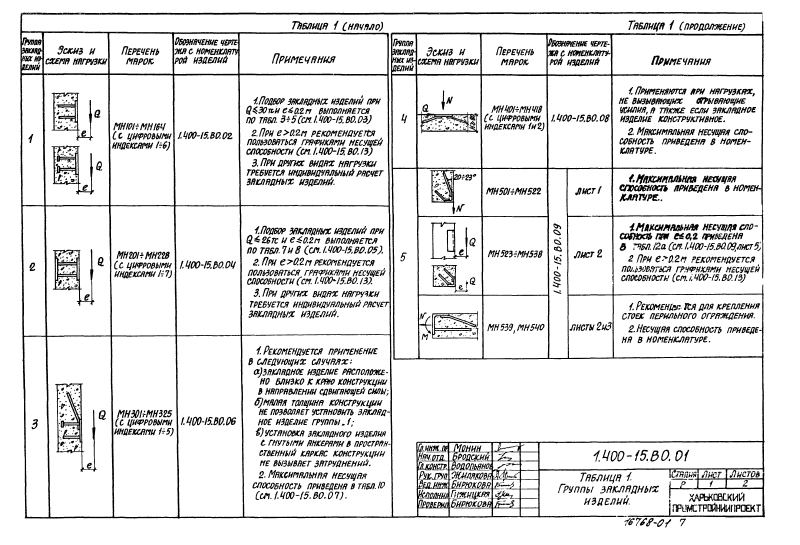 Таблица 1 (начало)
Группа закладных изделий
Эскиз и схема нагрузки
Перечень марок
Обозначение чертежа с номенклатурой изделий
Примечания
1
Q
e
Q
e
МН101÷МН164
(с цифровыми
индексами 1÷6)
1.400-15.В0.02
1. Подбор закладных изделий при
Q≤30тс и e≤0.2м выполняется
по табл. 3÷5 (см. 1.400-15.В0.03)
2. При e>0.2м рекомендуется
пользоваться графиками несущей
способности (см. 1.400-15.В0.13)
3. При других видах нагрузки
требуется индивидуальный расчет
закладных изделий.
2
Q
e
МН201÷МН228
(с цифровыми
индексами 1÷7)
1.400-15.В0.04
1. Подбор закладных изделий при
Q≤26тс и e≤0.2м выполняется
по табл. 7 и 8 (см. 1.400-15.В0.05).
2. При e>0.2м рекомендуется
пользоваться графиками несущей
способности (см. 1.400-15.В0.13).
3. При других видах нагрузки
требуется индивидуальный расчет
закладных изделий.
3
Q
e
МН301÷МН325
(с цифровыми
индексами 1÷5)
1.400-15.В0.06
1. Рекомендуется применение
в следующих случаях:
а) закладное изделие расположе-
но близко к краю конструкции
в направлении сдвигающей силы;
б) малая толщина конструкции
не позволяет установить заклад-
ное изделие группы 1;
в) установка закладного изделия
с гнутыми анкерами в простран-
ственный каркас конструкции
не вызывает затруднений.
2. Максимальная несущая
способность приведена в табл. 10
(см. 1.400-15.В0.07).
Таблица 1 (продолжение)
Группа закладных изделий
Эскиз и схема нагрузки
Перечень марок
Обозначение чертежа с номенклатурой изделий
Примечания
4
Q
N
МН401÷МН418
(с цифровыми
индексами 1и2)
1.400-15.В0.08
1. Применяются при нагрузках,
не вызывающих отрывающие
усилия, а также если закладное
изделие конструктивное.
2. Максимальная несущая спо-
собность приведена в номен-
клатуре.
5
20÷23°
N
МН501÷МН522
1.400-15.В0.09
лист 1
1. Максимальная несущая
способность приведена в номен-
клатуре.
Q
e
МН523÷МН538
лист 2
1. Максимальная несущая спо-
собность при e≤0,2 приведена
в табл. 12а (см. 1.400-15.В0.09, лист 5)
2. При e>0.2м рекомендуется
пользоваться графиками несущей
способности (см. 1.400-15.В0.13)
N
М
МН539, МН540
листы 2и3
1. Рекоменду тся для крепления
стоек перильного ограждения.
2. Несущая способность приведе-
на в номенклатуре.
Гл. инж. пр. Монин
Нач. отд. Бродский
Гл. констр. Водопьянов
Рук. груп. Жилакова
Вед. инж. Бирюкова
Исполнил
Проверил Бирюкова
1.400-15.В0.01
Таблица 1.
Группы закладных
изделий.
Стадия Лист Листов
Р 1 2
Харьковский
Промстройниипроект
16768-01 7